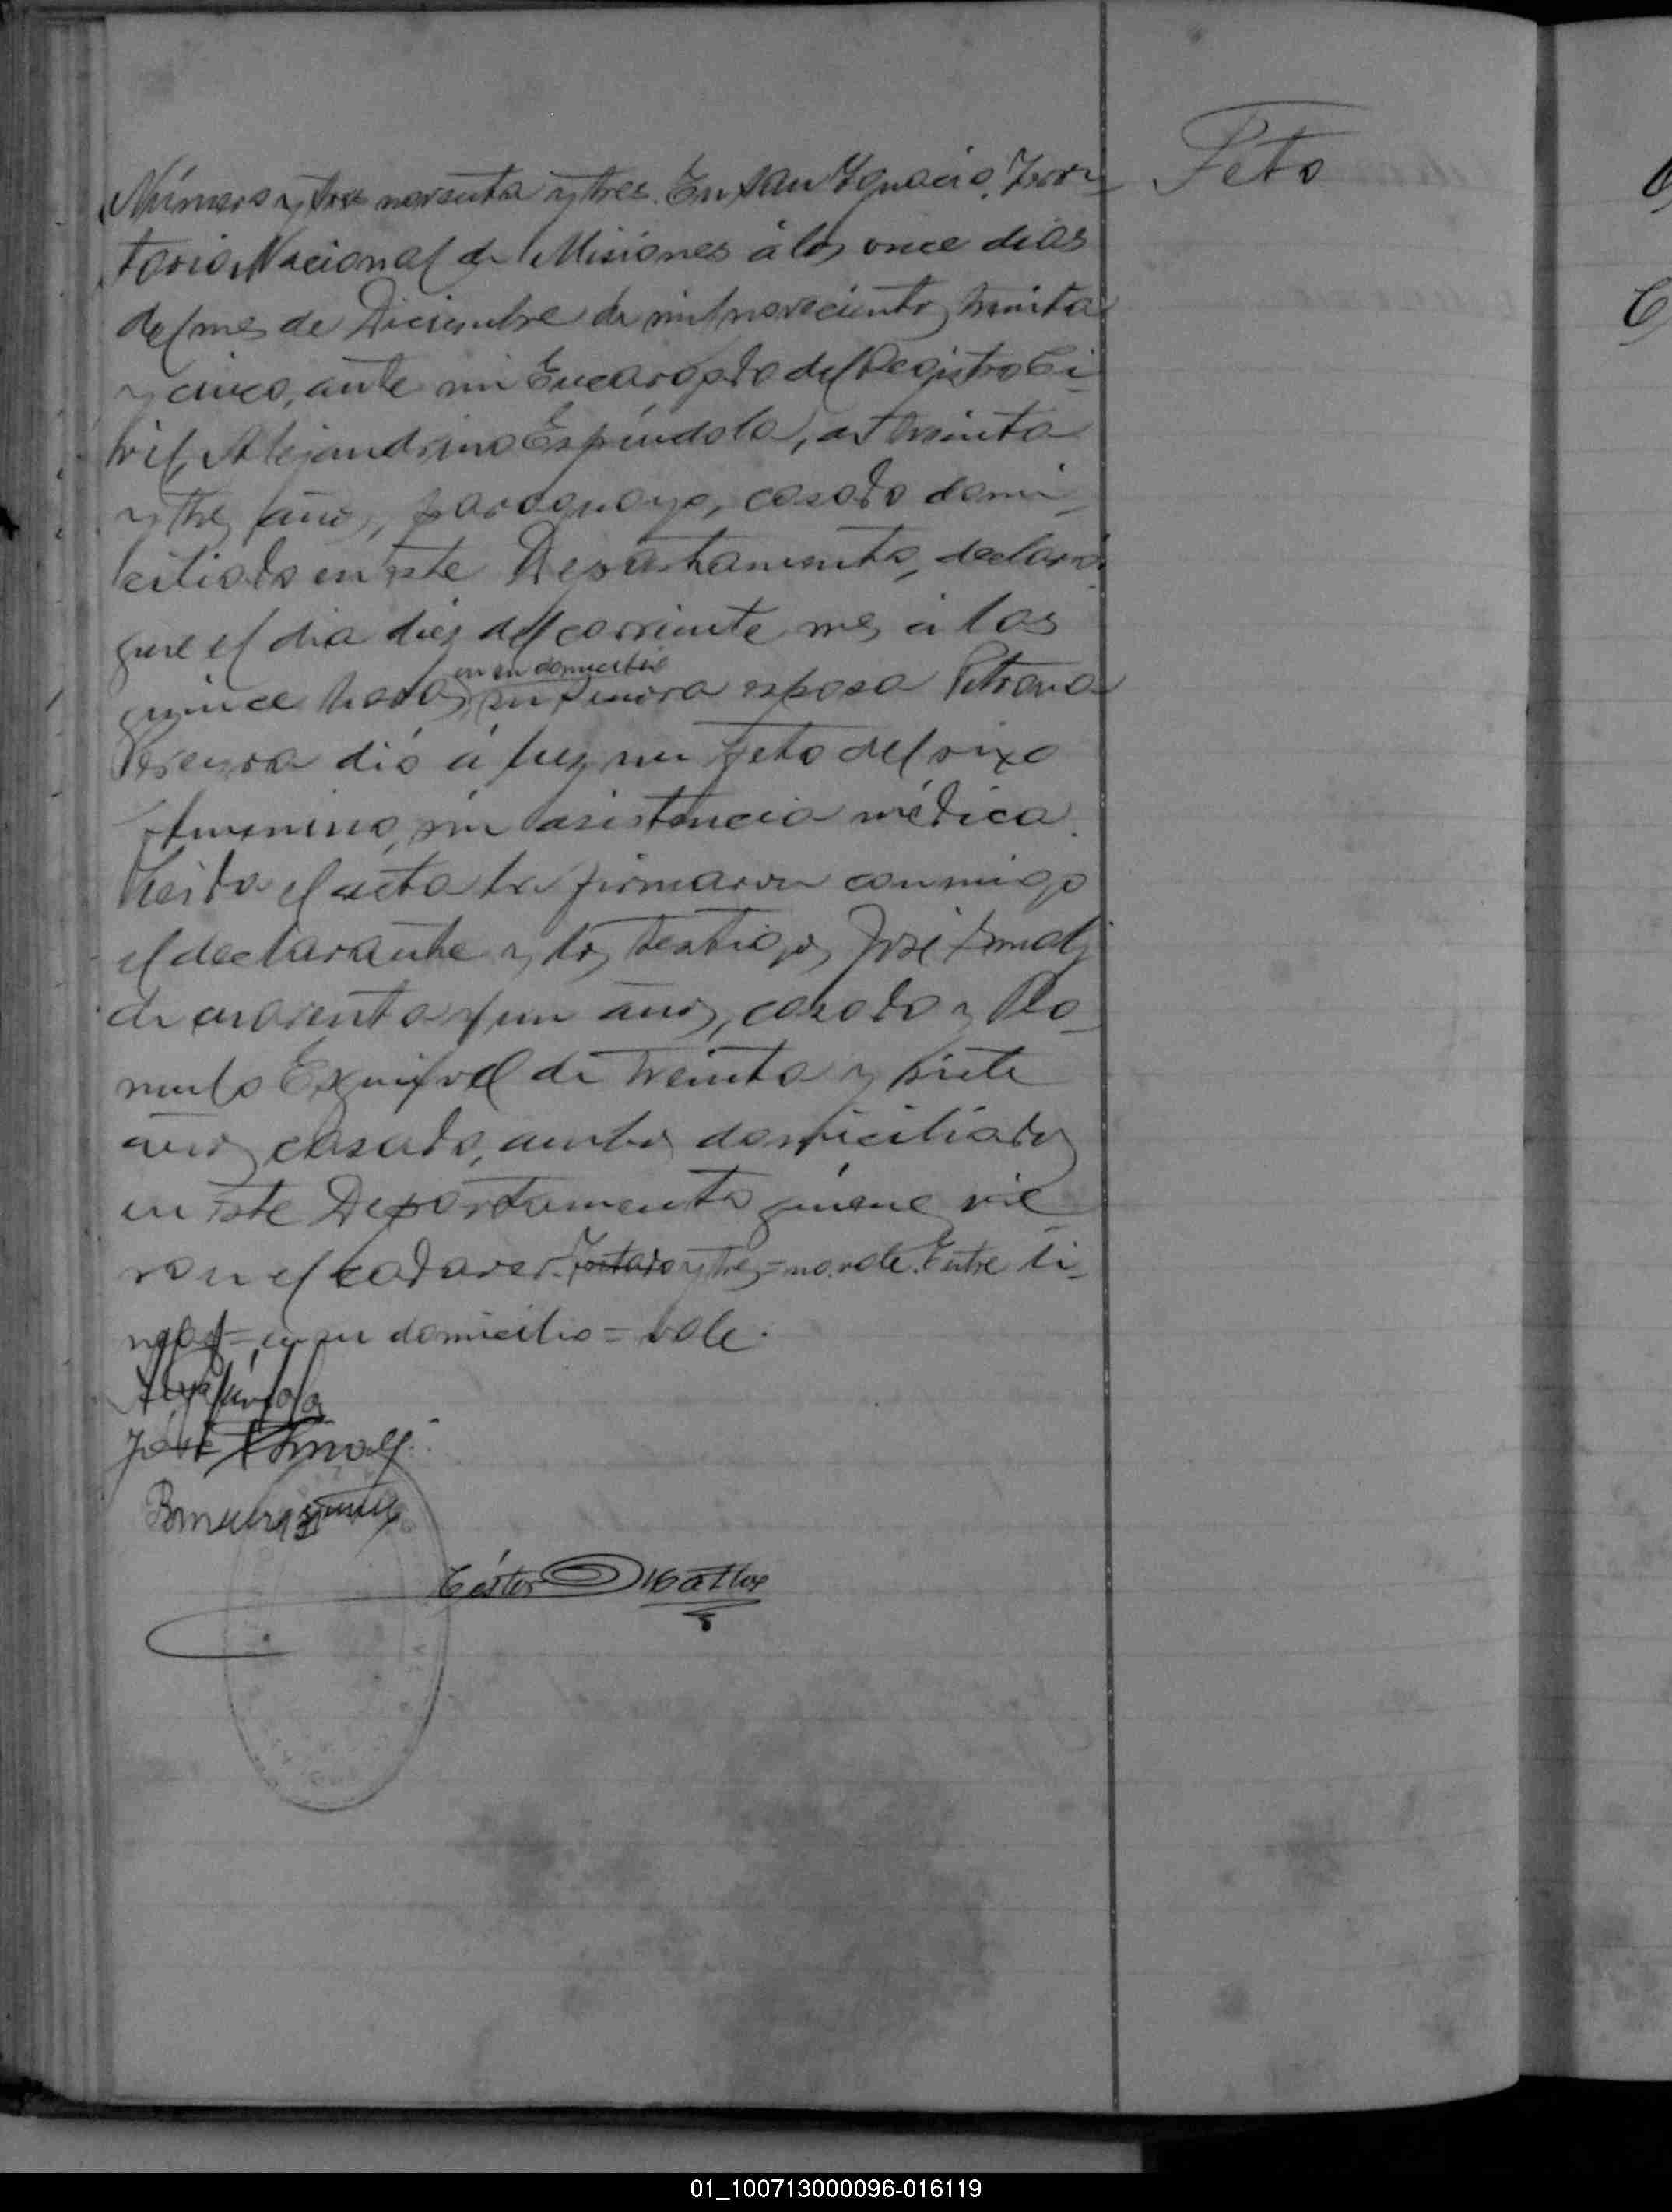 Número y tres noventa y tres. En San Ignacio, Terri-
torio Nacional de Misiones á los once dias
del mes de Diciembre de mil novecientos treinta
y cinco, ante mi Encargado del Registro Ci-
vil, Alejandrino Espíndola, de treinta
y tres años, paraguayo, casado domi-
ciliado en este Departamento, declaró
que el dia diez del corriente mes á las
en su domicilio
quince horas, su señora esposa Petrona
Pereyra dió á luz un feto del sexo
femenino, sin asistencia médica.
Leida el acta la firmaron conmigo
el declarante y los testigos José
de cuarenta y un años, casado y Ro-
mulo Esquivel de treinta y siete
años casado, ambos domiciliados
en este Departamento quienes vie-
ron el cadaver. Testado y tres = no vale. Entre li-
neas = en su domicilio = vale.
José
Feto
01_100713000096-016119